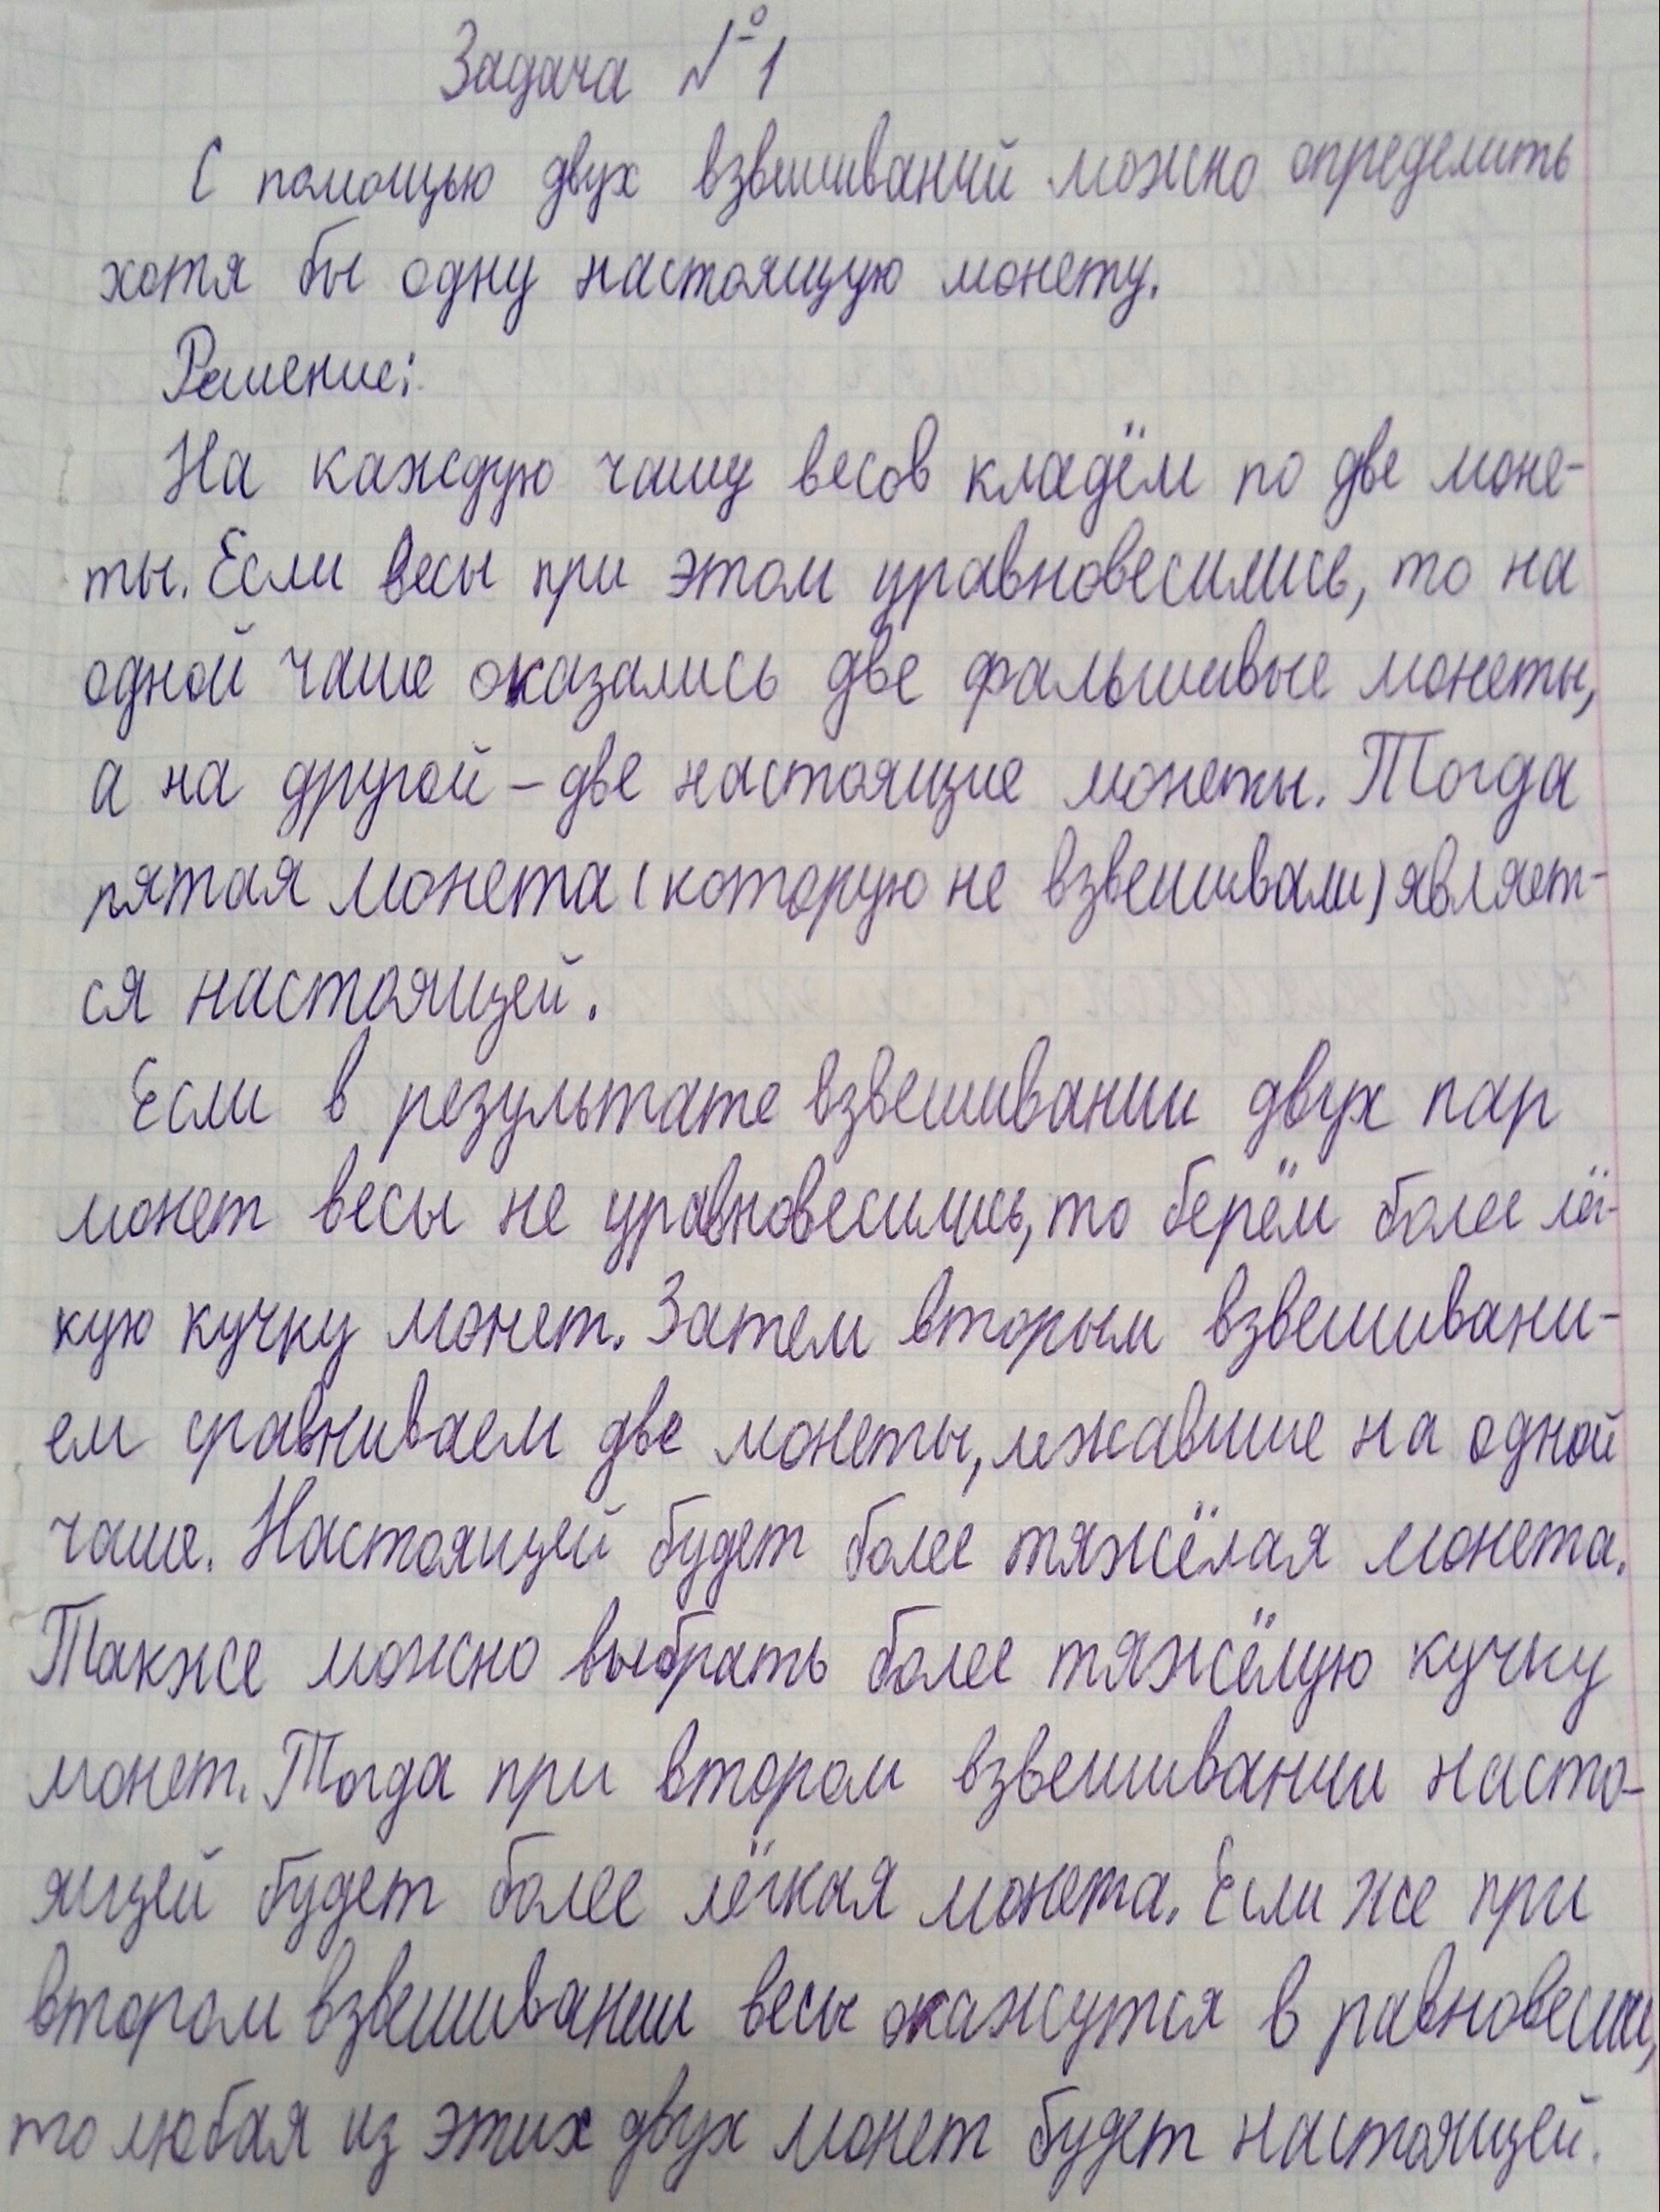 Задача №1
С помощью двух взвешиваний можно определить
хотя бы одну настоящую монету.
Решение:
На каждую чашу весов кладём по две моне-
ты. Если весы при этом уравновесились, то на
одной чаше оказались две фальшивые монеты,
а на другой - две настоящие монеты. Тогда
пятая монета (которую не взвешивали) являет-
ся настоящей.
Если в результате взвешивании двух пар
монет весы не уравновесились, то берём более лёг-
кую кучку монет. Затем вторым взвешивани-
ем сравниваем две монеты, лежавшие на одной
чаше. Настоящей будет более тяжёлая монета.
Также можно выбрать более тяжёлую кучку
монет. Тогда при втором взвешивании насто-
ящей будет более лёгкая монета. Если же при
втором взвешивании весы окажутся в равновесии,
то любая из этих двух монет будет настоящей.